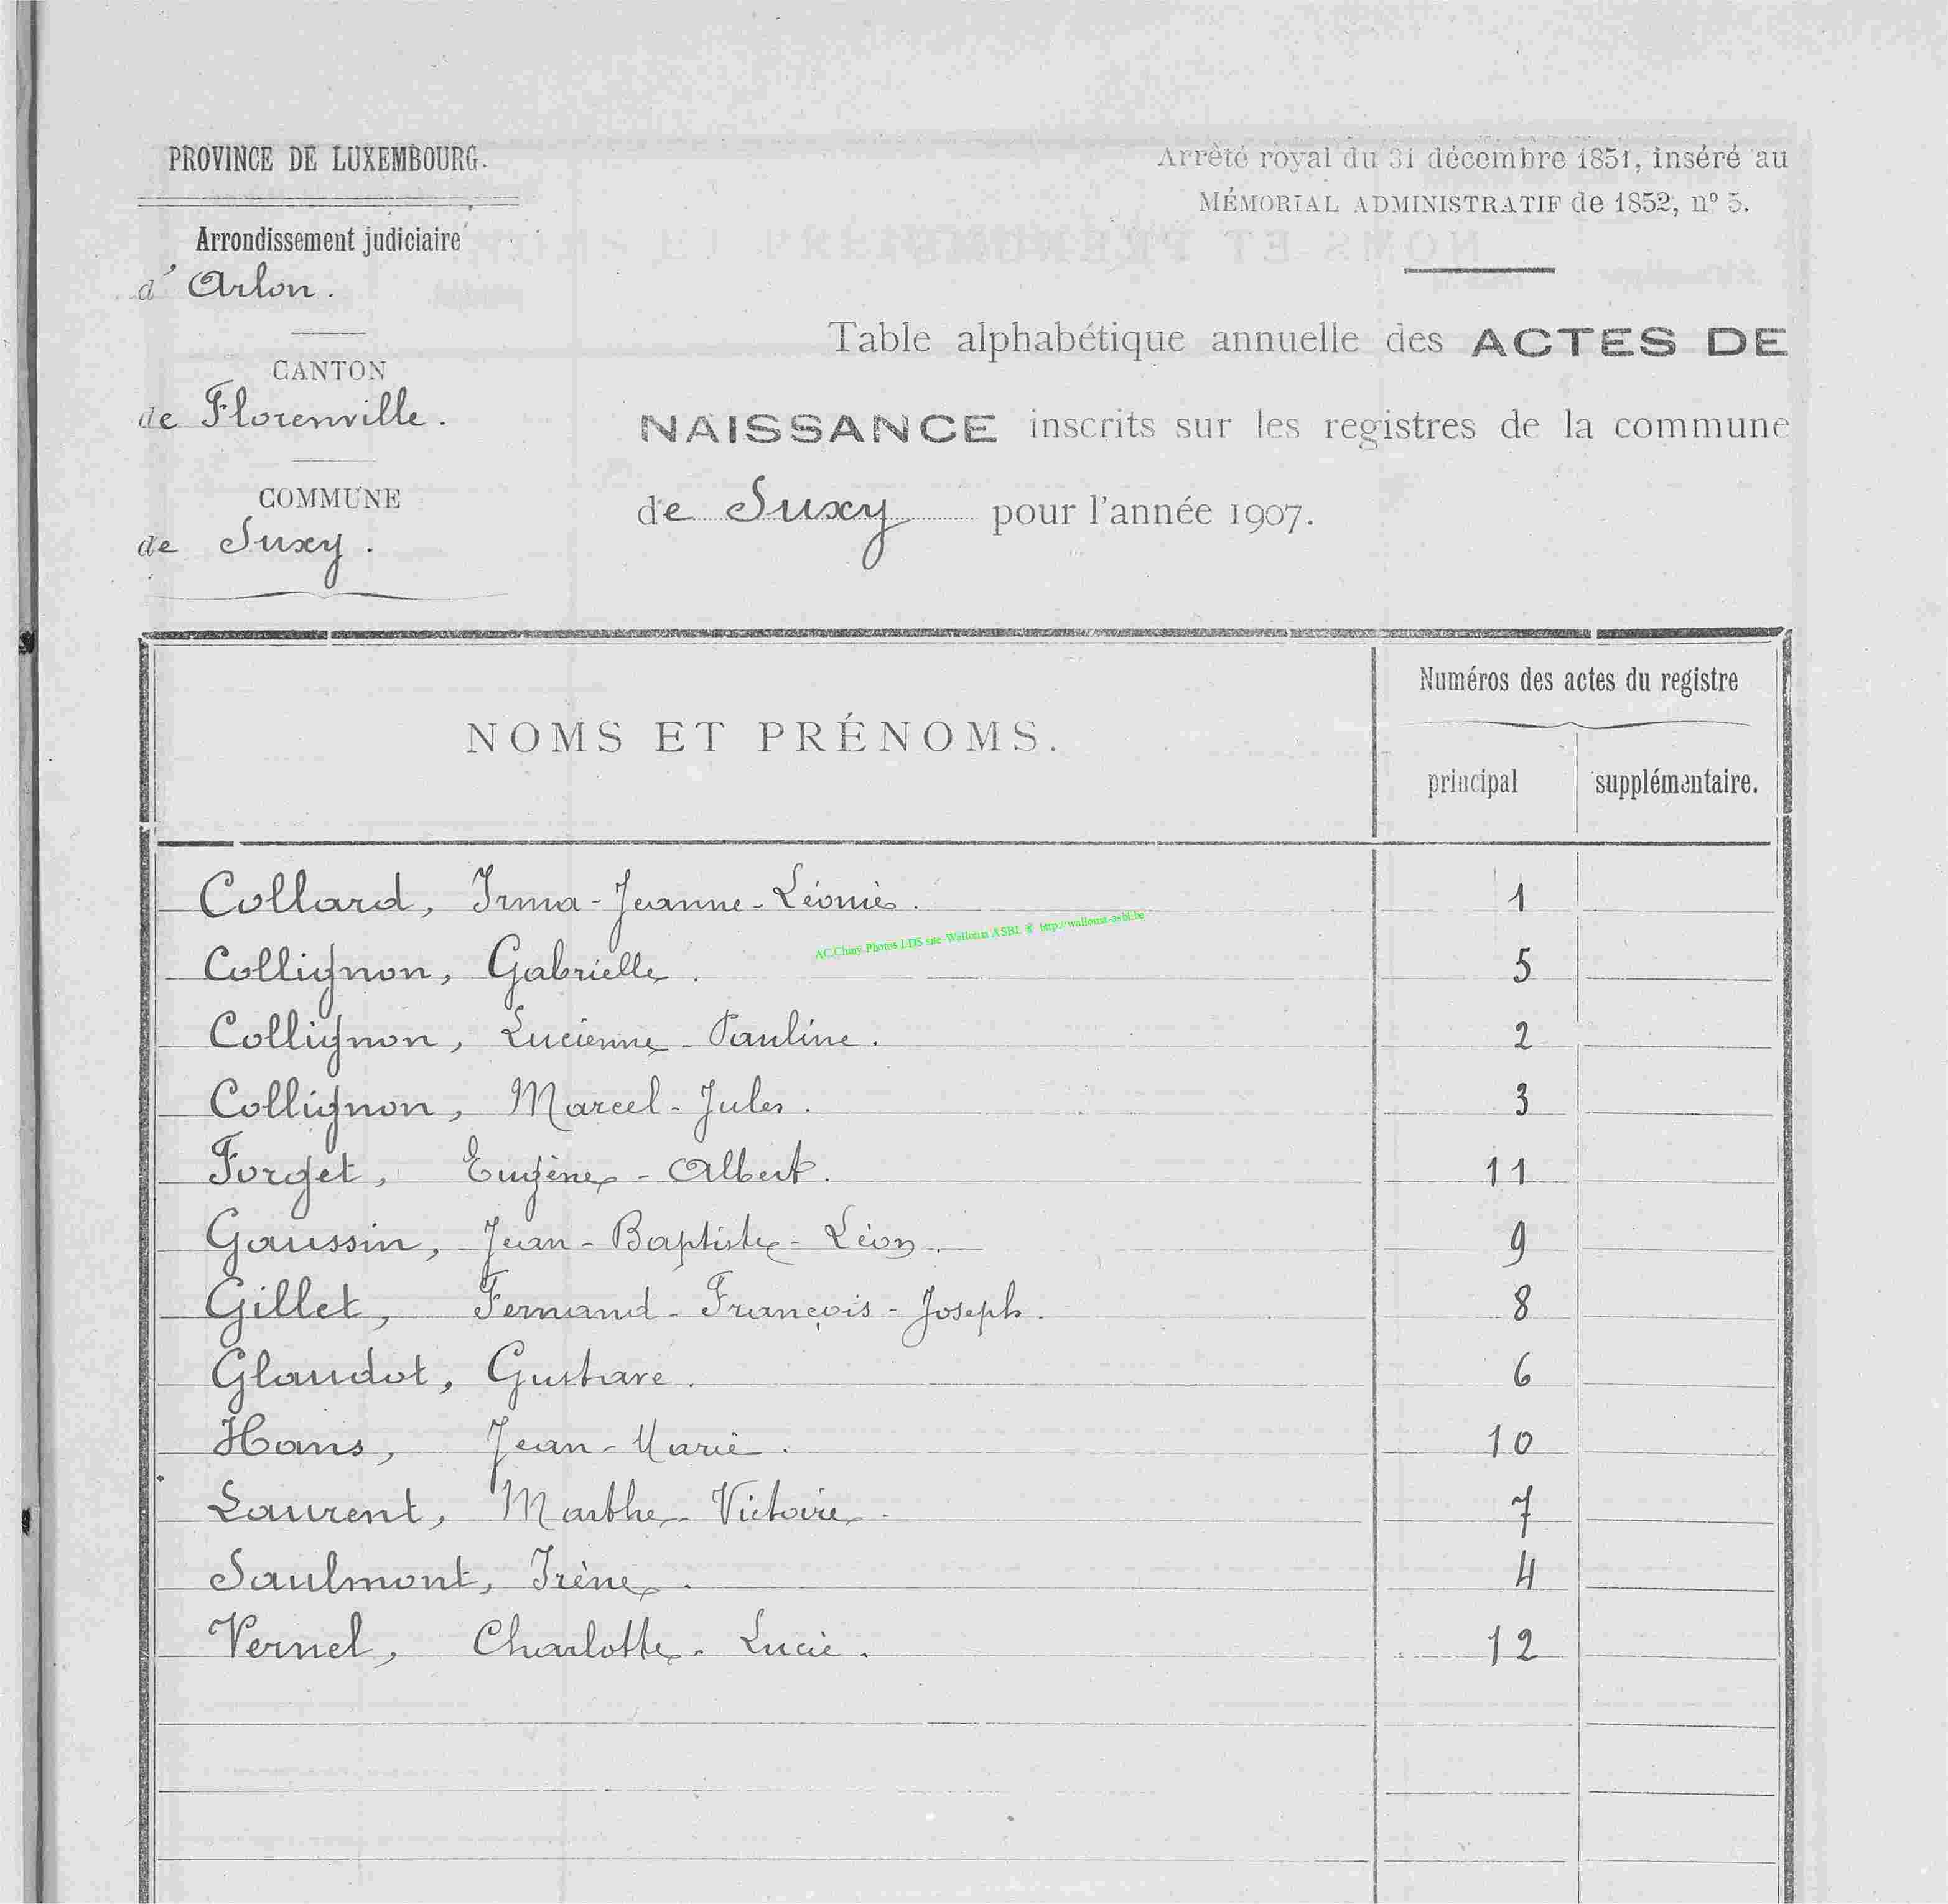 PROVINCE DE LUXEMBOURG.
Arrondissement judiciaire
d'Arlon.
CANTON
de Florenville.
COMMUNE
de Suxy.
Arrêté royal du 31 décembre 1851, inséré au
MÉMORIAL ADMINISTRATIF de 1852, n° 5.
Table alphabétique annuelle des ACTES DE
NAISSANCE inscrits sur les registres de la commune
de Suxy pour l'année 1907.
NOMS ET PRÉNOMS.
Numéros des actes du registre
principal supplémentaire.
Collard, Irma-Jeanne-Léonie. 1
AC Chiny Photos LDS site-Wallonia ASBL & http://wallonia-asbl.be
Collignon, Gabrielle. 5
Collignon, Lucienne-Pauline. 2
Collignon, Marcel-Jules. 3
Forget, Eugène-Albert. 11
Gaussin, Jean-Baptiste-Léon. 9
Gillet, Fernand-François-Joseph. 8
Glaudot, Gustave. 6
Hans, Jean-Marie. 10
Laurent, Marthe-Victoire. 7
Saulmont, Irène. 4
Vernel, Charlotte-Lucie. 12